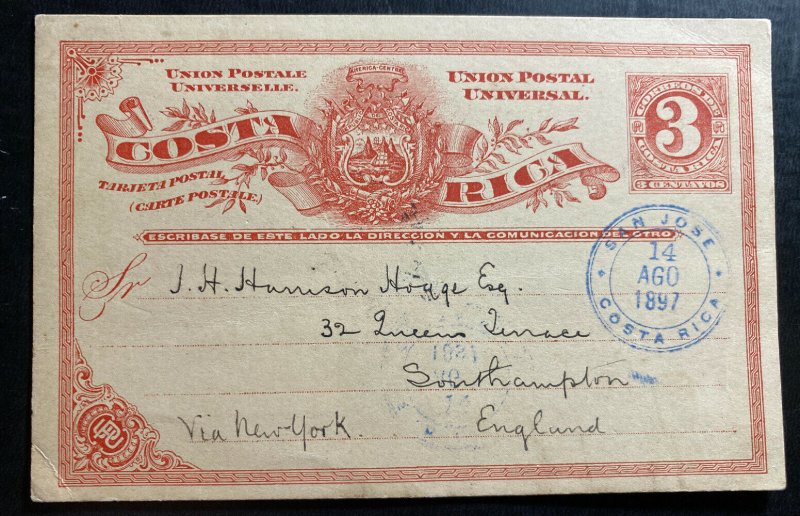 AMERICA-CENTRAL
UNION POSTALE
UNIVERSELLE.
UNION POSTAL
UNIVERSAL.
COSTA
RICA
TARJETA POSTAL
(CARTE POSTALE)
CORREOS DE
3
COSTA RICA
3 CENTAVOS
ESCRIBASE DE ESTE LADO LA DIRECCIÓN Y LA COMUNICACION DEL OTRO
SAN JOSE
14
AGO
1897
COSTA RICA
Sr J. H. Harrison Hogge Esq.
32 Queens Terrace
Southampton
Via New-York. England